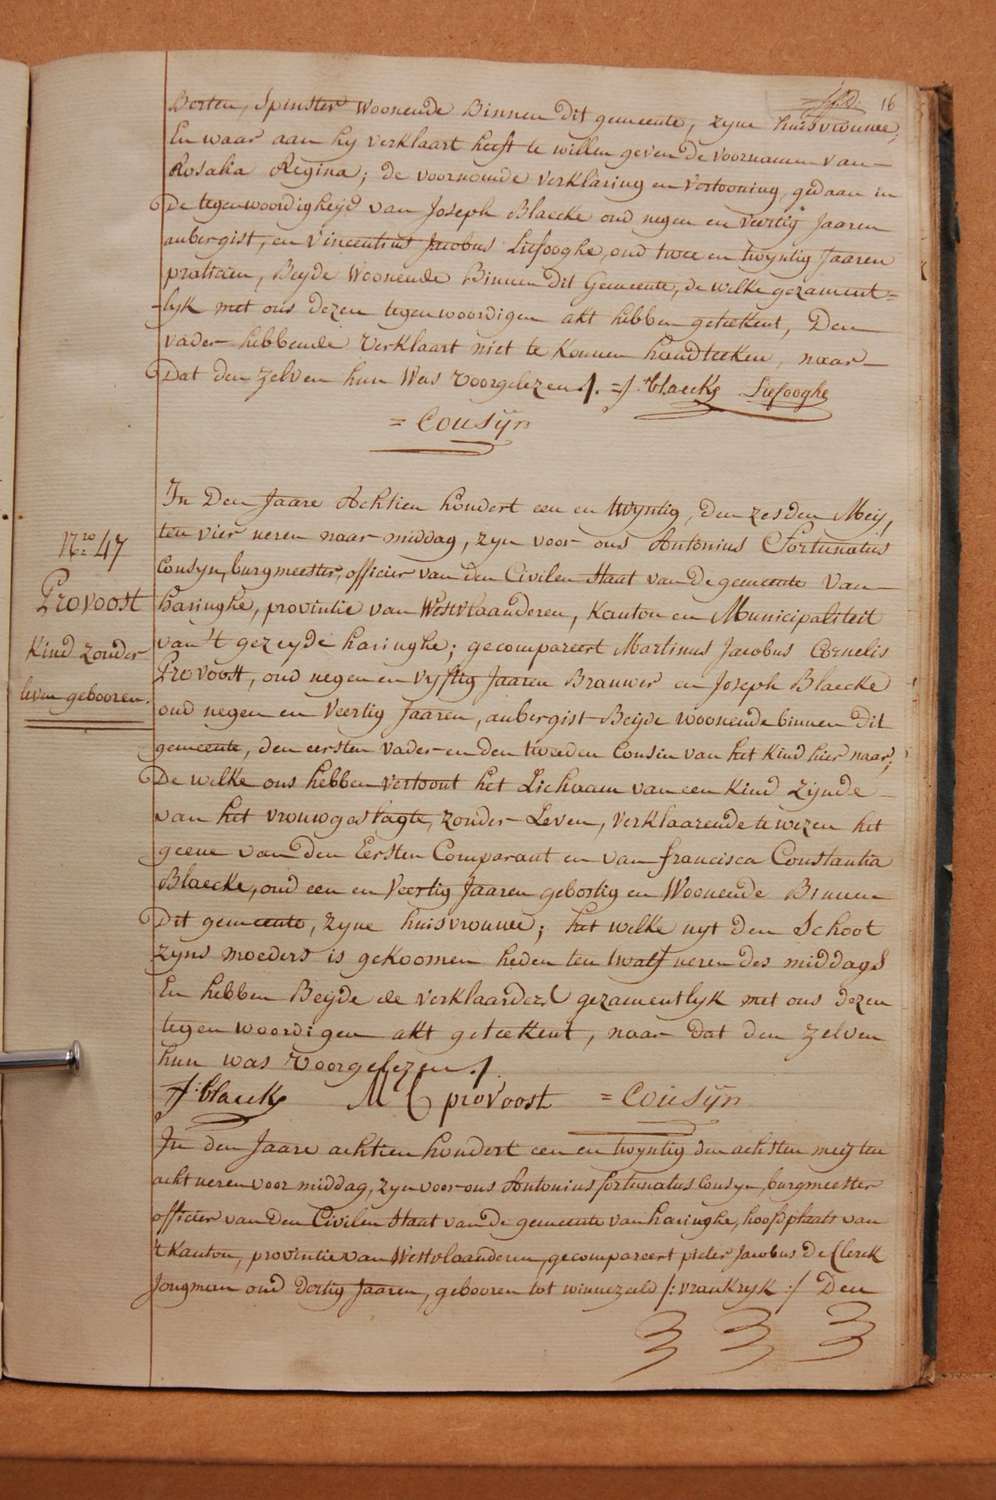 16
Borten, Spinster Woonende Binnen dit gemeente, zyne huisvrouwe,
En waar aan hy verklaart heeft te willen geven de voornamen van
Rosalia Regina; de voornoemde verklaring en vertooning, gedaan in
De tegenwoordigheijd van Joseph Blaecke oud negen en veertig Jaaren
aubergist, en Vincentius Jacobus Liefooghe, oud twee en twyntig Jaaren
praticien, Beyde Woonende Binnen Dit Gemeente, de welke gezament=
=lyk met ons dezen tegenwoordigen akt hebben geteekent, Den
vader hebbende Verklaart niet te konnen handteeken, naar
Dat den zelven hun Was Voorgelezen /. =J. blaecke Liefooghe
= Cousÿn
Nro 47
Provoost
Kind zonder
leven gebooren.
In Den Jaare Achtien hondert een en twyntig, den zesden Meij,
ten vier ueren naar middag, zyn voor ons Antonius Fortunatus
Cousyn, burgmeester, officier van den Civilen Staat van De gemeente van
haringhe, provintie van Westvlaanderen, Kanton en Municipaliteit
van 't gezeyde haringhe; gecompareert Martinus Jacobus Cornelis
Provoost, oud negen en vyftig Jaaren Brauwer en Joseph Blaecke
oud negen en Veertig Jaaren, aubergist Beijde woonende binnen dit
gemeente, den eersten vader en den tweeden Cousin van het kind hier naar;
De welke ons hebben vertoont het Lichaam van een kind zijnde
van het vrouwgeslagte, zonder Leven, verklaarende te wezen het
geene van den Eersten Comparant en van francisca Constantia
Blaecke, oud een en Veertig Jaaren gebortig en Woonende Binnen
Dit gemeente, zyne huisvrouwe; het welke uyt den Schoot
zyns moeders is gekoomen heden ten twalf ueren des middags
En hebben Beijde de verklaarders gezamentlyk met ons dezen
tegenwoordigen akt geteekent, naar dat den zelven
hun was Voorgelezen /.
J: blaecke M C provoost = Cousÿn
In den Jaare achtien hondert een en twyntig den achsten meij ten
acht ueren voor middag, zyn voor ons Antonius fortunatus Cousyn, burgmeester
officier van Den Civilen Staat van de gemeente van haringhe, hoofdplaats van
't Kanton, provintie van Westvlaanderen, gecompareert pieter Jacobus De Clerck
Jongman oud Dertig Jaaren, gebooren tot winnezeele /: vrankryk :/ Den